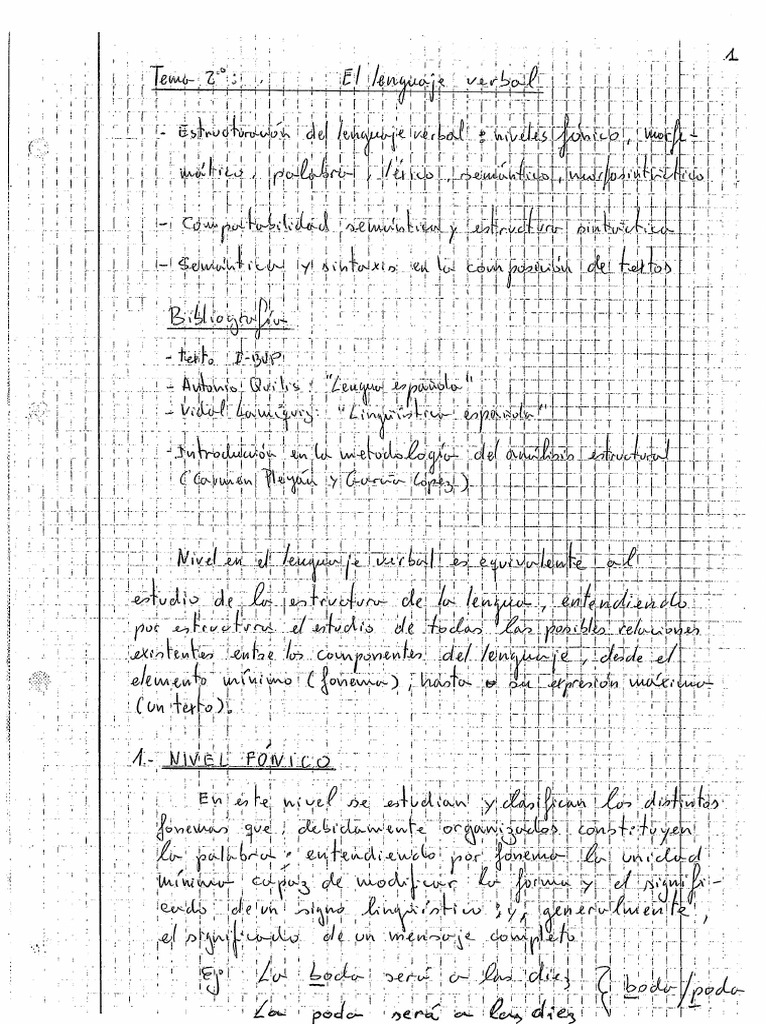 1
Tema 2º: El lenguaje verbal
- Estructuración del lenguaje verbal: niveles fónico, morfe-
mático, palabra, léxico, semántico, morfosintáctico
- Compatabilidad semántica y estructura sintáctica
- Semántica y sintaxis en la composición de textos
Bibliografía
- texto I-BUP
- Antonio Quilis: "Lengua española"
- Vidal Lamíquiz: "Lingüística española"
- Introducción en la metodología del análisis estructural
(Carmen Pleyán y García López).
Nivel en el lenguaje verbal es equivalente al
estudio de la estructura de la lengua, entendiendo
por estructura el estudio de todas las posibles relaciones
existentes entre los componentes del lenguaje, desde el
elemento mínimo (fonema), hasta su expresión máxima
(un texto).
1.- NIVEL FÓNICO
En este nivel se estudian y clasifican los distintos
fonemas que, debidamente organizados constituyen
la palabra; entendiendo por fonema la unidad
mínima capaz de modificar la forma y el signifi-
cado de un signo lingüístico; y, generalmente,
el significado de un mensaje completo
Ej: La boda será a las diez { boda/poda
La poda será a las diez